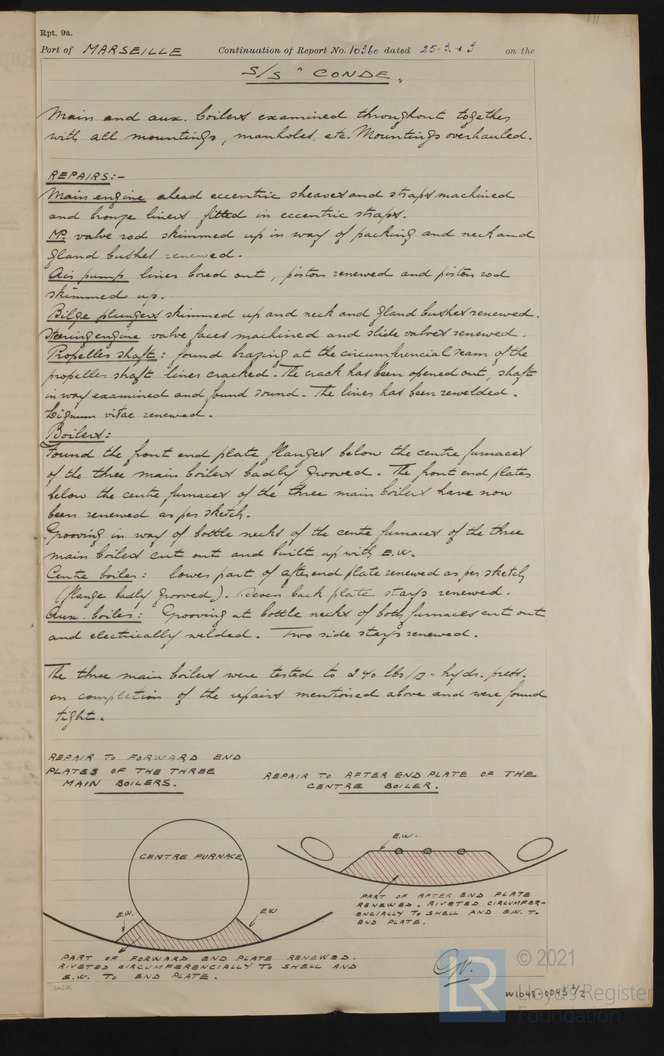 Rpt. 9a.
Port of MARSEILLE Continuation of Report No. 10360 dated 25-3-43 on the
S/S "CONDE"
Main and aux. boilers examined throughout together
with all mountings, manholes, etc. Mountings overhauled.
REPAIRS:-
Main engine ahead eccentric sheaves and straps machined
and bronze liners fitted in eccentric straps.
M.P. valve rod skimmed up in way of packing and neck and
gland bushes renewed.
Air pump liner bored out, piston renewed and piston rod
skimmed up.
Bilge plungers skimmed up and neck and gland bushes renewed.
Steering engine valve faces machined and slide valves renewed.
Propeller shaft: found brazing at the circumfrencial seam of the
propeller shaft liner cracked. The crack has been opened out, shaft
in way examined and found sound. The liner has been rewelded.
Lignum vitae renewed.
Boilers:
Found the front end plate flanges below the centre furnaces
of the three main boilers badly grooved. The front end plates
below the centre furnaces of the three main boilers have now
been renewed as per sketch.
Grooving in way of bottle necks of the centre furnaces of the three
main boilers cut out and built up with E.W.
Centre boiler: lower part of after end plate renewed as per sketch
(flange badly grooved). Seven back plate stays renewed.
Aux. boiler: Grooving at bottle necks of both furnaces cut out
and electrically welded. Two side stays renewed.
The three main boilers were tested to 240 lbs/□" hyds. press.
on completion of the repairs mentioned above and were found
tight.
REPAIR TO FORWARD END
PLATES OF THE THREE
MAIN BOILERS.
REPAIR TO AFTER END PLATE OF THE
CENTRE BOILER.
CENTRE FURNACE
E.W.
E.W.
PART OF FORWARD END PLATE RENEWED.
RIVETED CIRCUMFERENCIALLY TO SHELL AND
E.W. TO END PLATE.
E.W.
PART OF AFTER END PLATE
RENEWED. RIVETED CIRCUMFER-
ENCIALLY TO SHELL AND E.W. TO
END PLATE.
© 2021
LR
Lloyd's Register
Foundation
W1048-0043 1/2